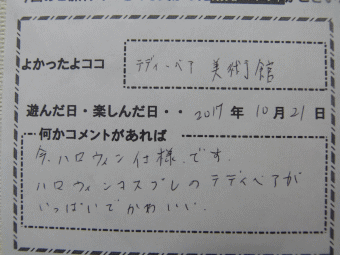 よかったよココ テディーベア 美術館
遊んだ日・楽しんだ日・・ 2017 年 10 月 21 日
何かコメントがあれば
今、ハロウィン仕様です。
ハロウィンコスプレのテディベアが
いっぱいでかわいい。